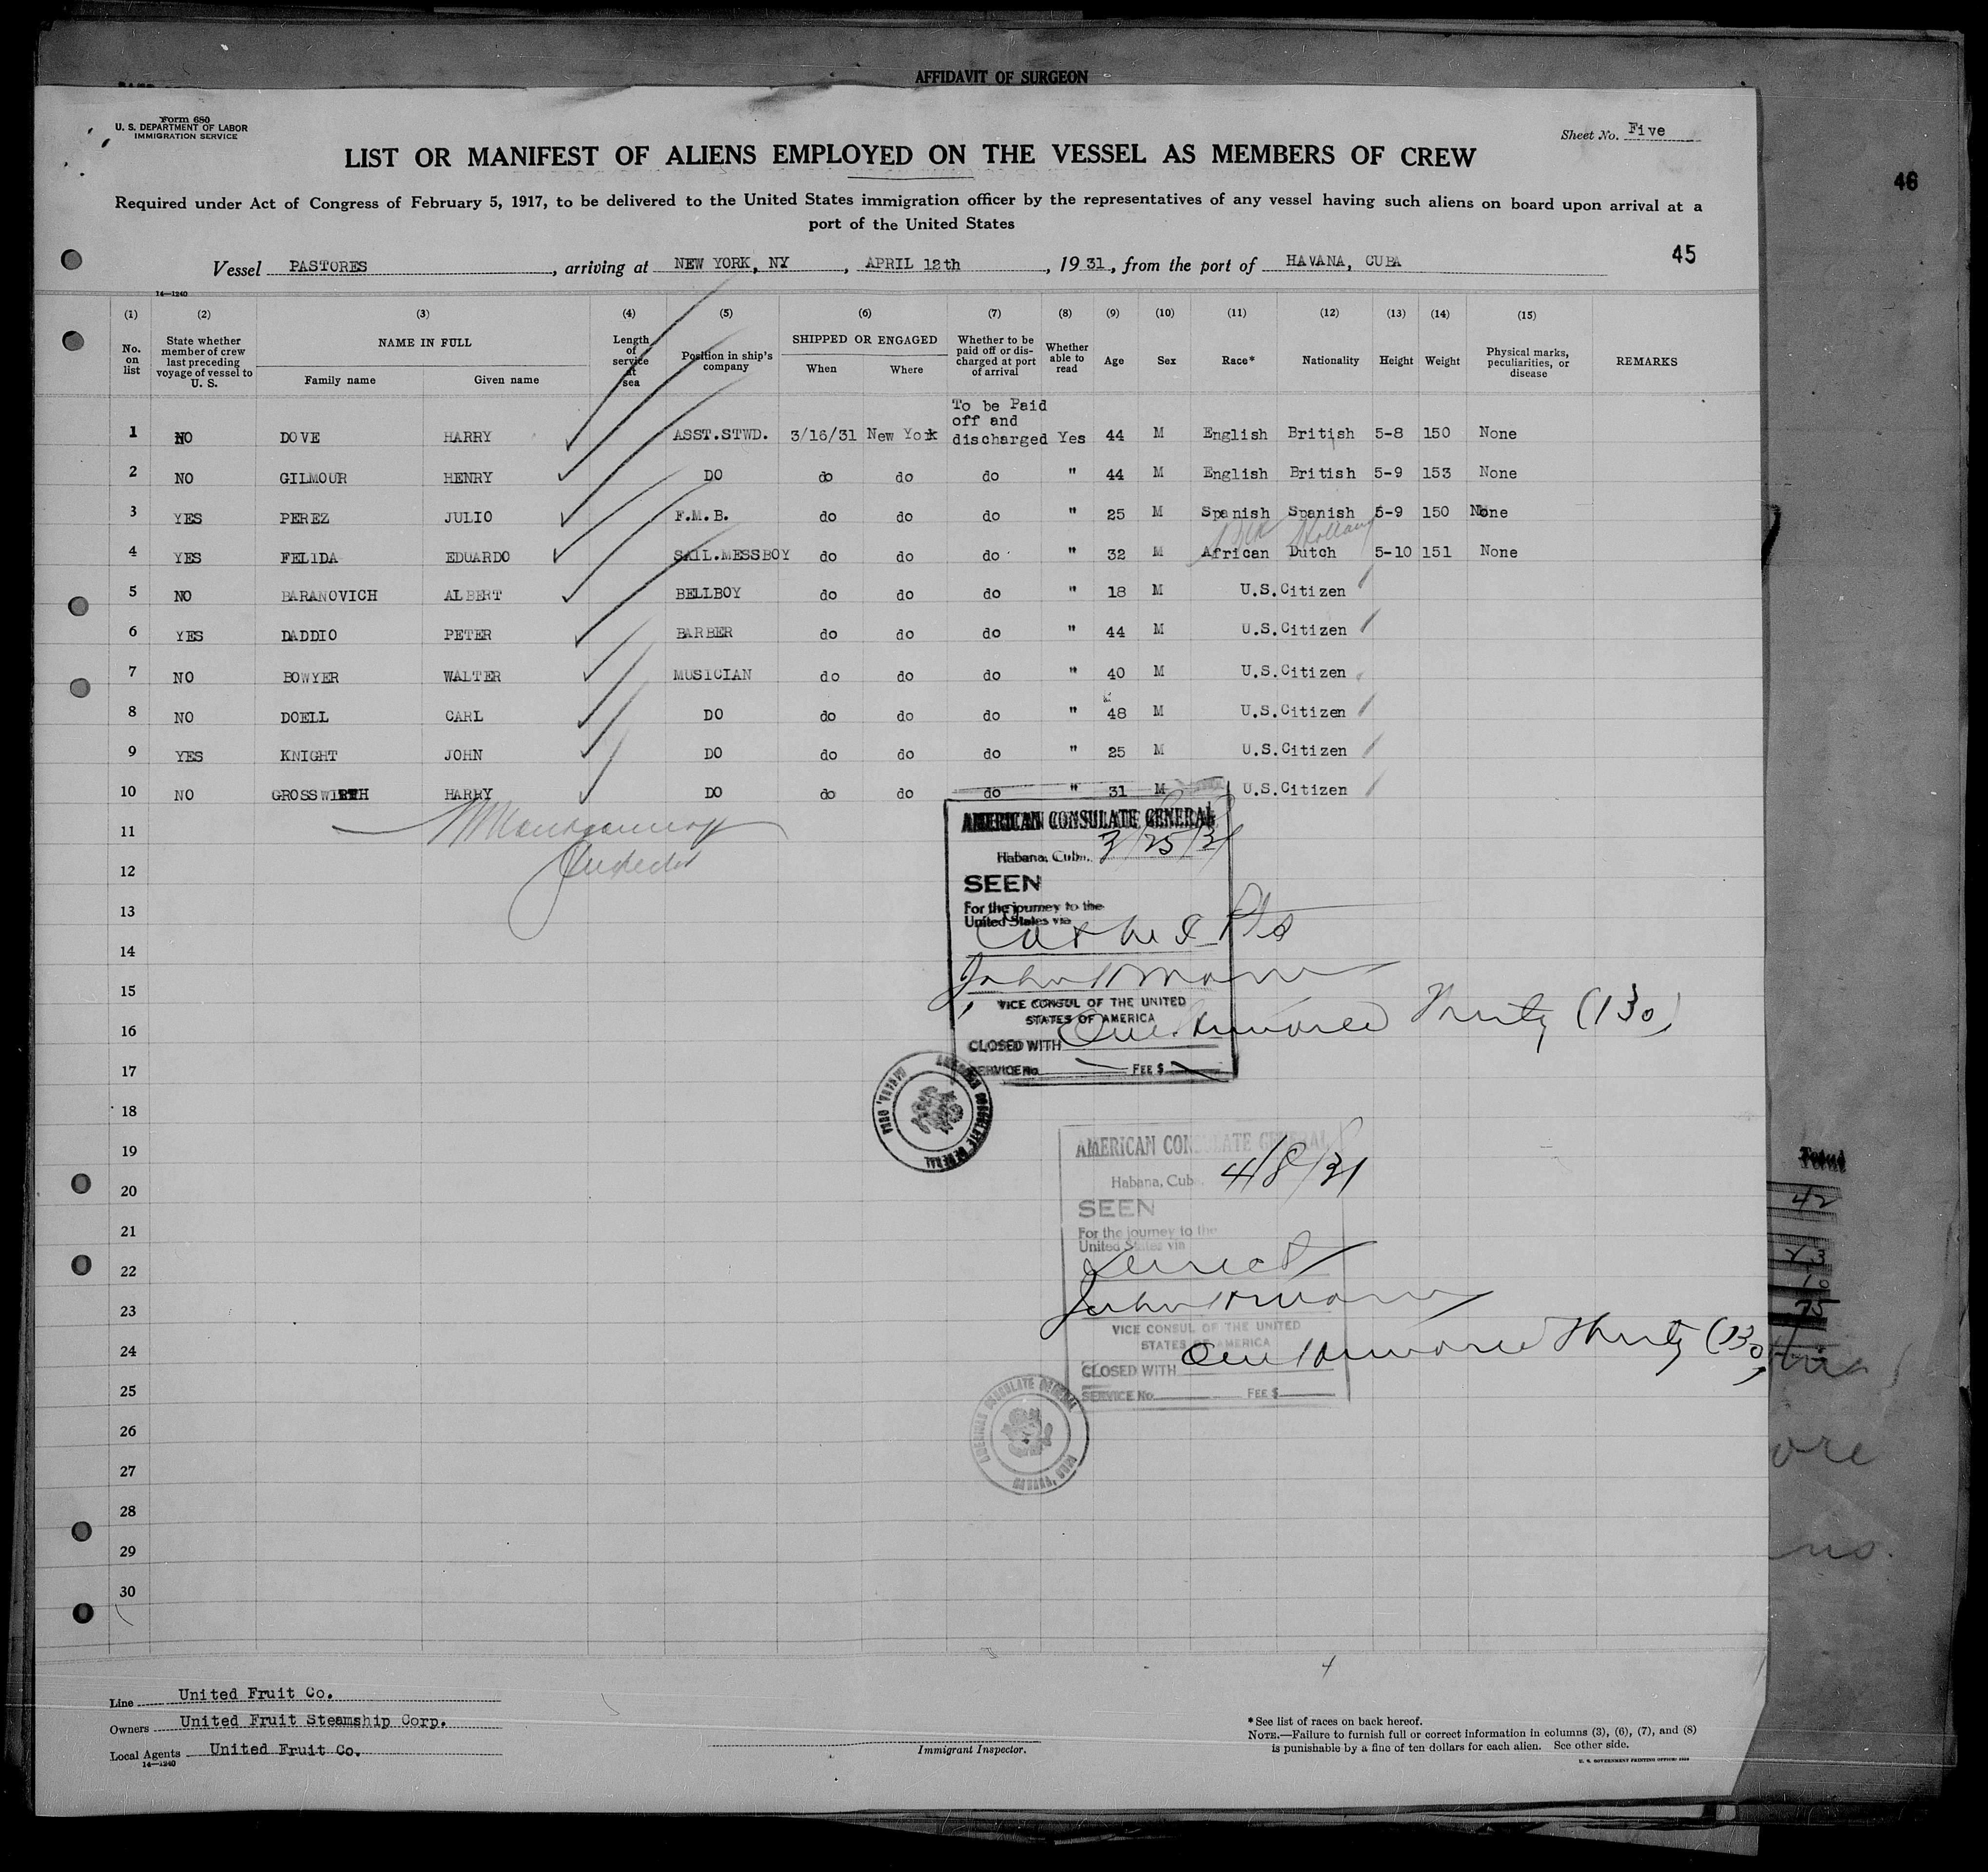 AFFIDAVIT OF SURGEON
Form 680
U. S. DEPARTMENT OF LABOR
IMMIGRATION SERVICE
Sheet No. Five
LIST OR MANIFEST OF ALIENS EMPLOYED ON THE VESSEL AS MEMBERS OF CREW
46
Required under Act of Congress of February 5, 1917, to be delivered to the United States immigration officer by the representatives of any vessel having such aliens on board upon arrival at a
port of the United States
45
Vessel PASTORES, arriving at NEW YORK, NY, APRIL 12th, 1931, from the port of HAVANA, CUBA
14—1240
(1) (2) (3) (4) (5) (6) (7) (8) (9) (10) (11) (12) (13) (14) (15)
No. on list State whether member of crew last preceding voyage of vessel to U. S. NAME IN FULL Family name Given name Length of service at sea Position in ship's company SHIPPED OR ENGAGED When Where Whether to be paid off or discharged at port of arrival Whether able to read Age Sex Race* Nationality Height Weight Physical marks, peculiarities, or disease REMARKS
1 NO DOVE HARRY ASST.STWD. 3/16/31 New York To be Paid off and discharged Yes 44 M English British 5-8 150 None
2 NO GILMOUR HENRY DO do do do " 44 M English British 5-9 153 None
3 YES PEREZ JULIO F.M.B. do do do " 25 M Spanish Spanish 5-9 150 None
4 YES FELIDA EDUARDO SAIL.MESSBOY do do do " 32 M African Dutch 5-10 151 None
Holland
5 NO BARANOVICH ALBERT BELLBOY do do do " 18 M U.S.Citizen
6 YES DADDIO PETER BARBER do do do " 44 M U.S.Citizen
7 NO BOWYER WALTER MUSICIAN do do do " 40 M U.S.Citizen
8 NO DOELL CARL DO do do do " 48 M U.S.Citizen
9 YES KNIGHT JOHN DO do do do " 25 M U.S.Citizen
10 NO GROSSWIRTH HARRY DO do do do " 31 M U.S.Citizen
11
12
13
14
15
16
17
18
19
20
21
22
23
24
25
26
27
28
29
30
Inspector
AMERICAN CONSULATE GENERAL
Habana, Cuba. 3/25/31
SEEN
For the journey to the
United States via
VICE CONSUL OF THE UNITED
STATES OF AMERICA
CLOSED WITH One hundred Thirty (130)
SERVICE No. FEE $
AMERICAN CONSULATE GENERAL
HABANA, CUBA
AMERICAN CONSULATE GENERAL
Habana, Cub 4/8/31
SEEN
For the journey to the
United States via
direct
VICE CONSUL OF THE UNITED
STATES OF AMERICA
CLOSED WITH One hundred Thirty (130)
SERVICE No. FEE $
AMERICAN CONSULATE GENERAL
HABANA, CUBA
Total
42
10
75
Line United Fruit Co.
Owners United Fruit Steamship Corp.
Local Agents United Fruit Co.
14—1240
Immigrant Inspector.
*See list of races on back hereof.
NOTE.—Failure to furnish full or correct information in columns (3), (6), (7), and (8)
is punishable by a fine of ten dollars for each alien. See other side.